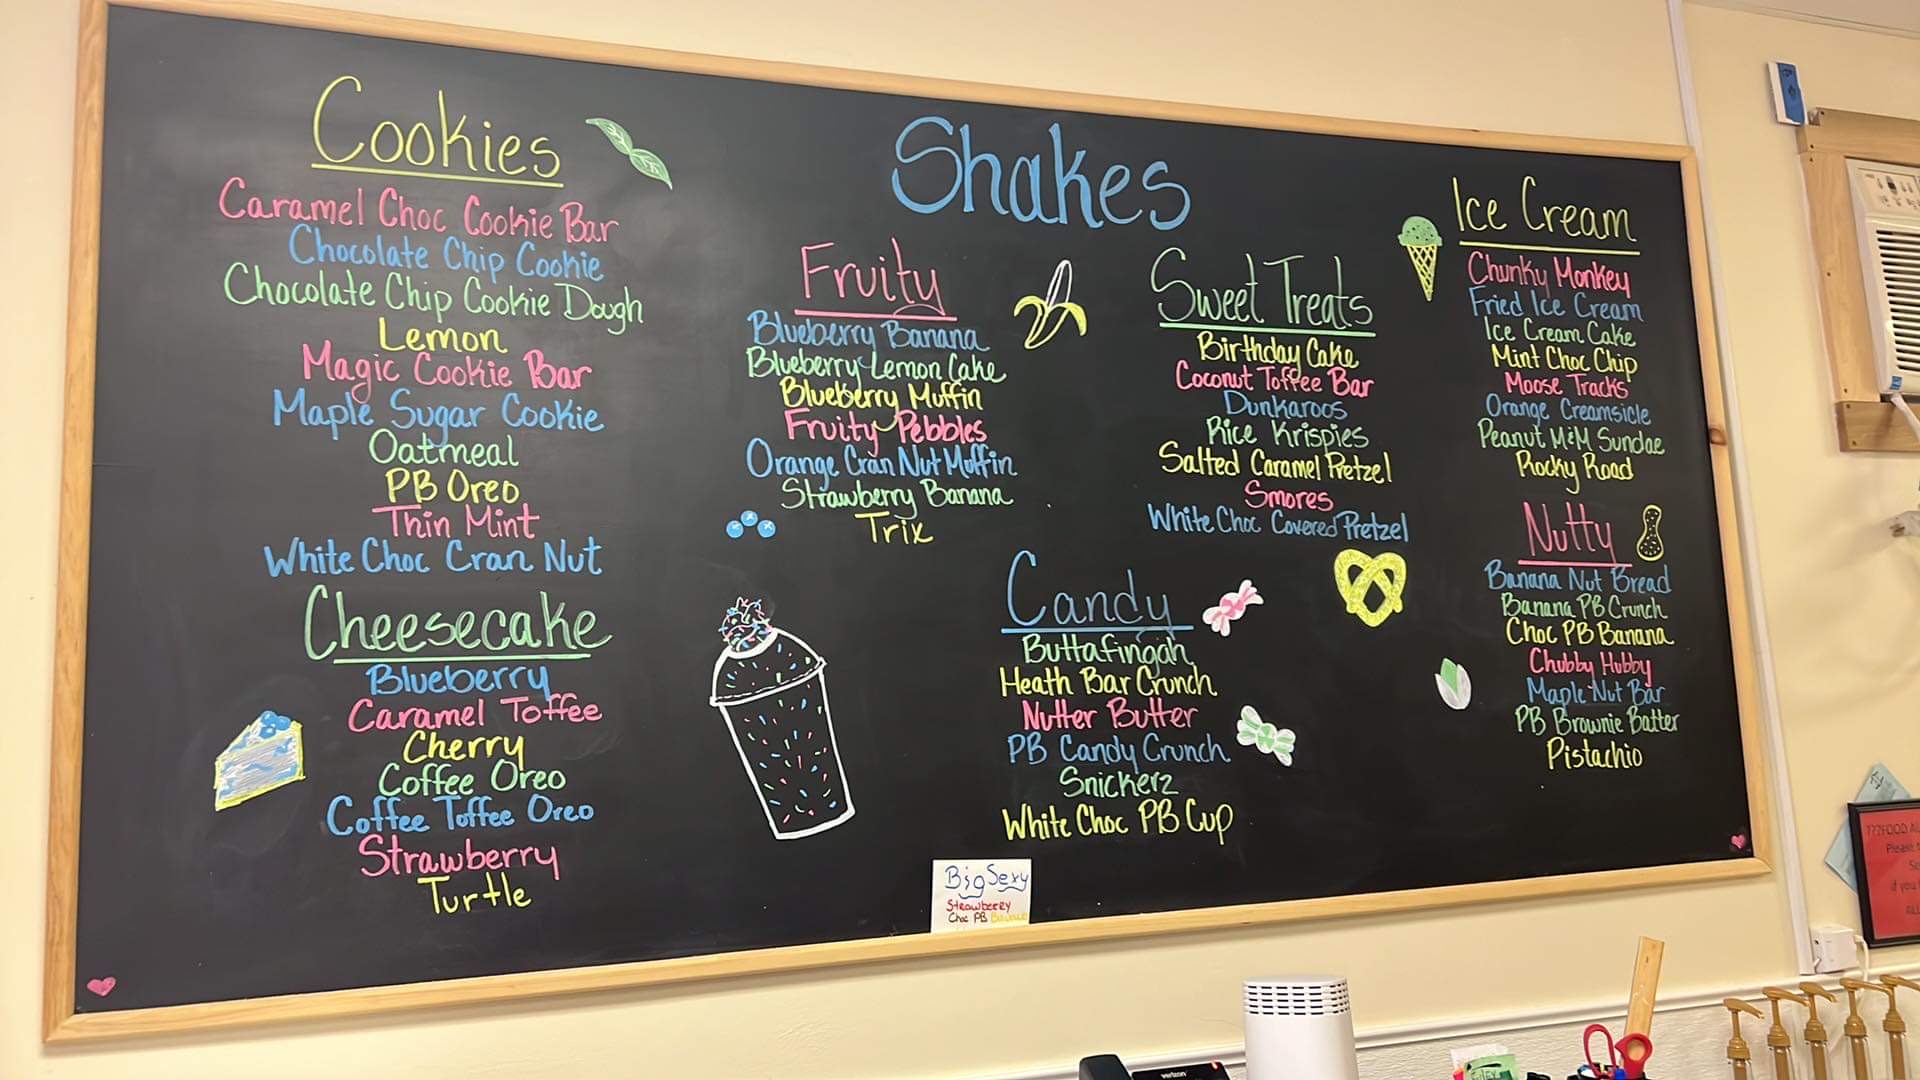 Shakes
Cookies
Caramel Choc Cookie Bar
Chocolate Chip Cookie
Chocolate Chip Cookie Dough
Lemon
Magic Cookie Bar
Maple Sugar Cookie
Oatmeal
PB Oreo
Thin Mint
White Choc Cran Nut
Cheesecake
Blueberry
Caramel Toffee
Cherry
Coffee Oreo
Coffee Toffee Oreo
Strawberry
Turtle
Fruity
Blueberry Banana
Blueberry Lemon Cake
Blueberry Muffin
Fruity Pebbles
Orange Cran Nut Muffin
Strawberry Banana
Trix
Sweet Treats
Birthday Cake
Coconut Toffee Bar
Dunkaroos
Rice Krispies
Salted Caramel Pretzel
Smores
White Choc Covered Pretzel
Candy
Buttafingah
Heath Bar Crunch
Nutter Butter
PB Candy Crunch
Snickerz
White Choc PB Cup
Ice Cream
Chunky Monkey
Fried Ice Cream
Ice Cream Cake
Mint Choc Chip
Moose Tracks
Orange Creamsicle
Peanut M&M Sundae
Rocky Road
Nutty
Banana Nut Bread
Banana PB Crunch
Choc PB Banana
Chubby Hubby
Maple Nut Bar
PB Brownie Batter
Pistachio
Big Sexy
Strawberry
Choc PB Banana
???FOOD
Please
if you
verizon